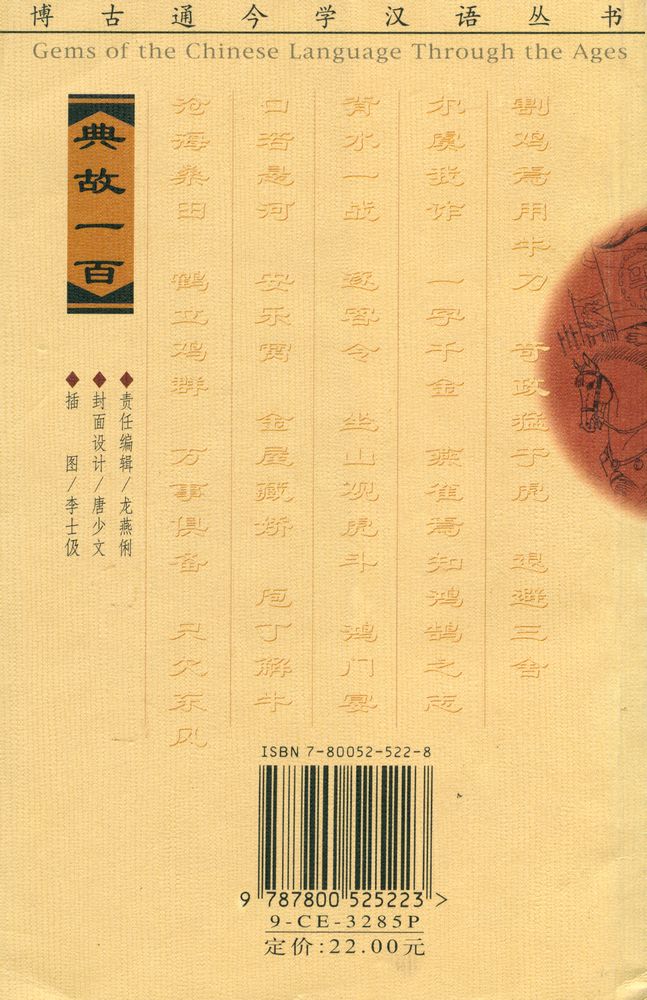 博古通今学汉语丛书
Gems of the Chinese Language Through the Ages
割鸡焉用牛刀 苛政猛于虎 退避三舍
尔虞我诈 一字千金 燕雀焉知鸿鹄之志
背水一战 逐客令 坐山观虎斗 鸿门宴
口若悬河 安乐窝 金屋藏娇 庖丁解牛
沧海桑田 鹤立鸡群 万事俱备 只欠东风
典故一百
责任编辑/龙燕俐
封面设计/唐少文
插 图/李士伋
ISBN 7-80052-522-8
9 787800 525223 >
9-CE-3285P
定价:22.00元